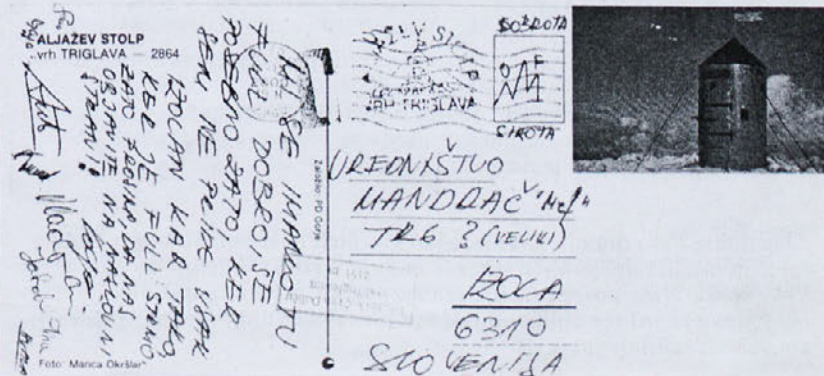 ALJAŽEV STOLP
vrh TRIGLAVA — 2864
MI SE IMAMO TU
FULL DOBRO, ŠE
POSEBNO ZATO KER
SEM NE PRIDE VSAK
IZOLAN KAR TAKO,
KER JE FULL STRMO
ZATO PROSIMO DA NAS
OBJAVITE NA NASLOVNI
STRANI!
Foto: Marica Okršlar
Založilo PD Gorje
VRH TRIGLAVA
DOBROTA
SIROTA
UREDNIŠTVO
MANDRAČ
TRG ? (VELIKI)
IZOLA
6310
SLOVENIJA